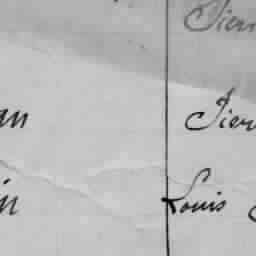 Pierr
an Pierr
in Louis